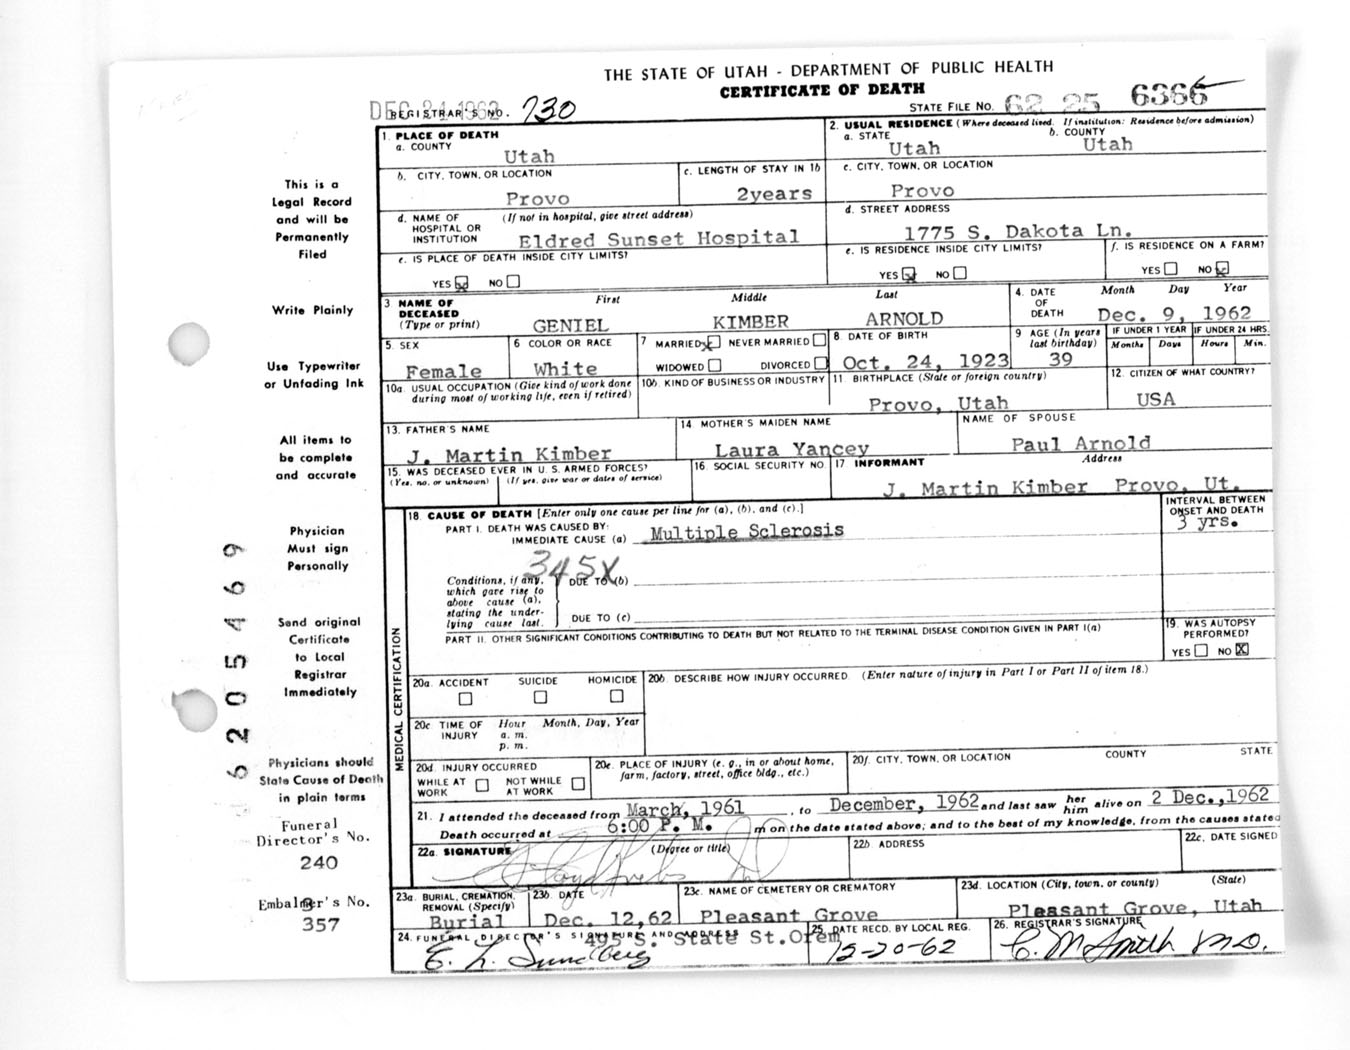 THE STATE OF UTAH - DEPARTMENT OF PUBLIC HEALTH
CERTIFICATE OF DEATH
DEC 21 1962 REGISTRAR'S NO. 730 STATE FILE NO. 62 25 6366
1. PLACE OF DEATH
a. COUNTY
Utah
2. USUAL RESIDENCE (Where deceased lived. If institution: Residence before admission)
a. STATE b. COUNTY
Utah Utah
b. CITY, TOWN, OR LOCATION
Provo
c. LENGTH OF STAY IN 1b
2years
c. CITY, TOWN, OR LOCATION
Provo
d. NAME OF HOSPITAL OR INSTITUTION (If not in hospital, give street address)
Eldred Sunset Hospital
d. STREET ADDRESS
1775 S. Dakota Ln.
e. IS PLACE OF DEATH INSIDE CITY LIMITS?
YES X NO
e. IS RESIDENCE INSIDE CITY LIMITS?
YES X NO
f. IS RESIDENCE ON A FARM?
YES NO X
3 NAME OF DECEASED (Type or print)
First Middle Last
GENIEL KIMBER ARNOLD
4. DATE OF DEATH
Month Day Year
Dec. 9, 1962
5. SEX
Female
6 COLOR OR RACE
White
7 MARRIED X NEVER MARRIED
WIDOWED DIVORCED
8. DATE OF BIRTH
Oct. 24, 1923
9 AGE (In years last birthday)
39
IF UNDER 1 YEAR IF UNDER 24 HRS.
Months Days Hours Min.
10a. USUAL OCCUPATION (Give kind of work done during most of working life, even if retired)
10b. KIND OF BUSINESS OR INDUSTRY
11. BIRTHPLACE (State or foreign country)
Provo, Utah
12. CITIZEN OF WHAT COUNTRY?
USA
13. FATHER'S NAME
J. Martin Kimber
14 MOTHER'S MAIDEN NAME
Laura Yancey
NAME OF SPOUSE
Paul Arnold
15. WAS DECEASED EVER IN U.S. ARMED FORCES?
(Yes, no. or unknown) (If yes, give war or dates of service)
16. SOCIAL SECURITY NO.
17 INFORMANT Address
J. Martin Kimber Provo, Ut.
MEDICAL CERTIFICATION
18. CAUSE OF DEATH [Enter only one cause per line for (a), (b), and (c).]
INTERVAL BETWEEN ONSET AND DEATH
PART I. DEATH WAS CAUSED BY:
IMMEDIATE CAUSE (a) Multiple Sclerosis 3 yrs.
345X
Conditions, if any, which gave rise to above cause (a), stating the underlying cause last.
DUE TO (b)
DUE TO (c)
PART II. OTHER SIGNIFICANT CONDITIONS CONTRIBUTING TO DEATH BUT NOT RELATED TO THE TERMINAL DISEASE CONDITION GIVEN IN PART I(a)
19. WAS AUTOPSY PERFORMED?
YES NO X
20a. ACCIDENT SUICIDE HOMICIDE
20b. DESCRIBE HOW INJURY OCCURRED. (Enter nature of injury in Part I or Part II of item 18.)
20c TIME OF INJURY
Hour Month, Day, Year
a. m.
p. m.
20d. INJURY OCCURRED
WHILE AT WORK NOT WHILE AT WORK
20e. PLACE OF INJURY (e. g., in or about home, farm, factory, street, office bldg., etc.)
20f. CITY, TOWN, OR LOCATION COUNTY STATE
21. I attended the deceased from March, 1961, to December, 1962 and last saw her him alive on 2 Dec., 1962
Death occurred at 6:00 P. M. m on the date stated above; and to the best of my knowledge, from the causes stated
22a. SIGNATURE (Degree or title)
22b ADDRESS
22c. DATE SIGNED
23a. BURIAL, CREMATION, REMOVAL (Specify)
Burial
23b. DATE
Dec. 12, 62
23c. NAME OF CEMETERY OR CREMATORY
Pleasant Grove
23d. LOCATION (City, town, or county) (State)
Pleasant Grove, Utah
24. FUNERAL DIRECTOR'S SIGNATURE AND ADDRESS
495 S. State St. Orem
E. L. Sundberg
25. DATE RECD. BY LOCAL REG.
12-20-62
26. REGISTRAR'S SIGNATURE
C. M Smith M.D.
This is a
Legal Record
and will be
Permanently
Filed
Write Plainly
Use Typewriter
or Unfading Ink
All items to
be complete
and accurate
Physician
Must sign
Personally
Send original
Certificate
to Local
Registrar
Immediately
Physicians should
State Cause of Death
in plain terms
Funeral
Director's No.
240
Embalmer's No.
357
6205469